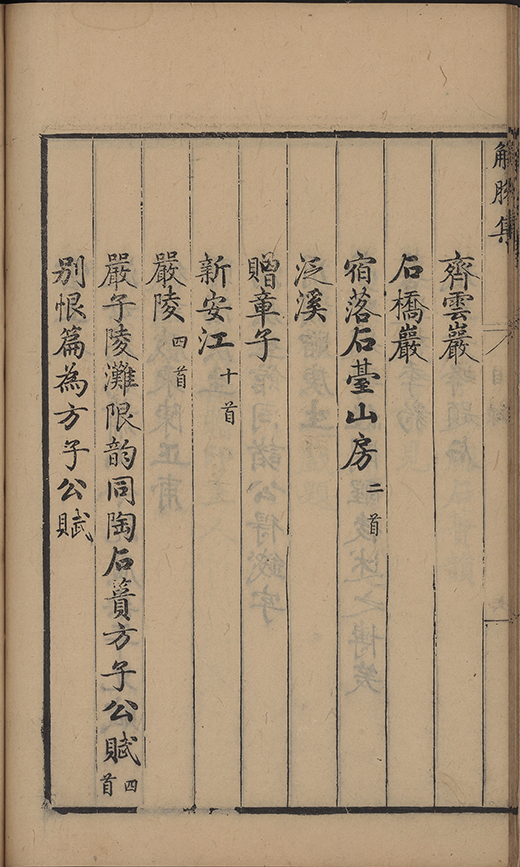 解脫集
齊雲巖
石橋巖
宿落石臺山房 二首
泛溪
贈章子
新安江 十首
嚴陵 四首
嚴子陵灘限韵同陶石簣方子公賦 四首
别恨篇為方子公賦